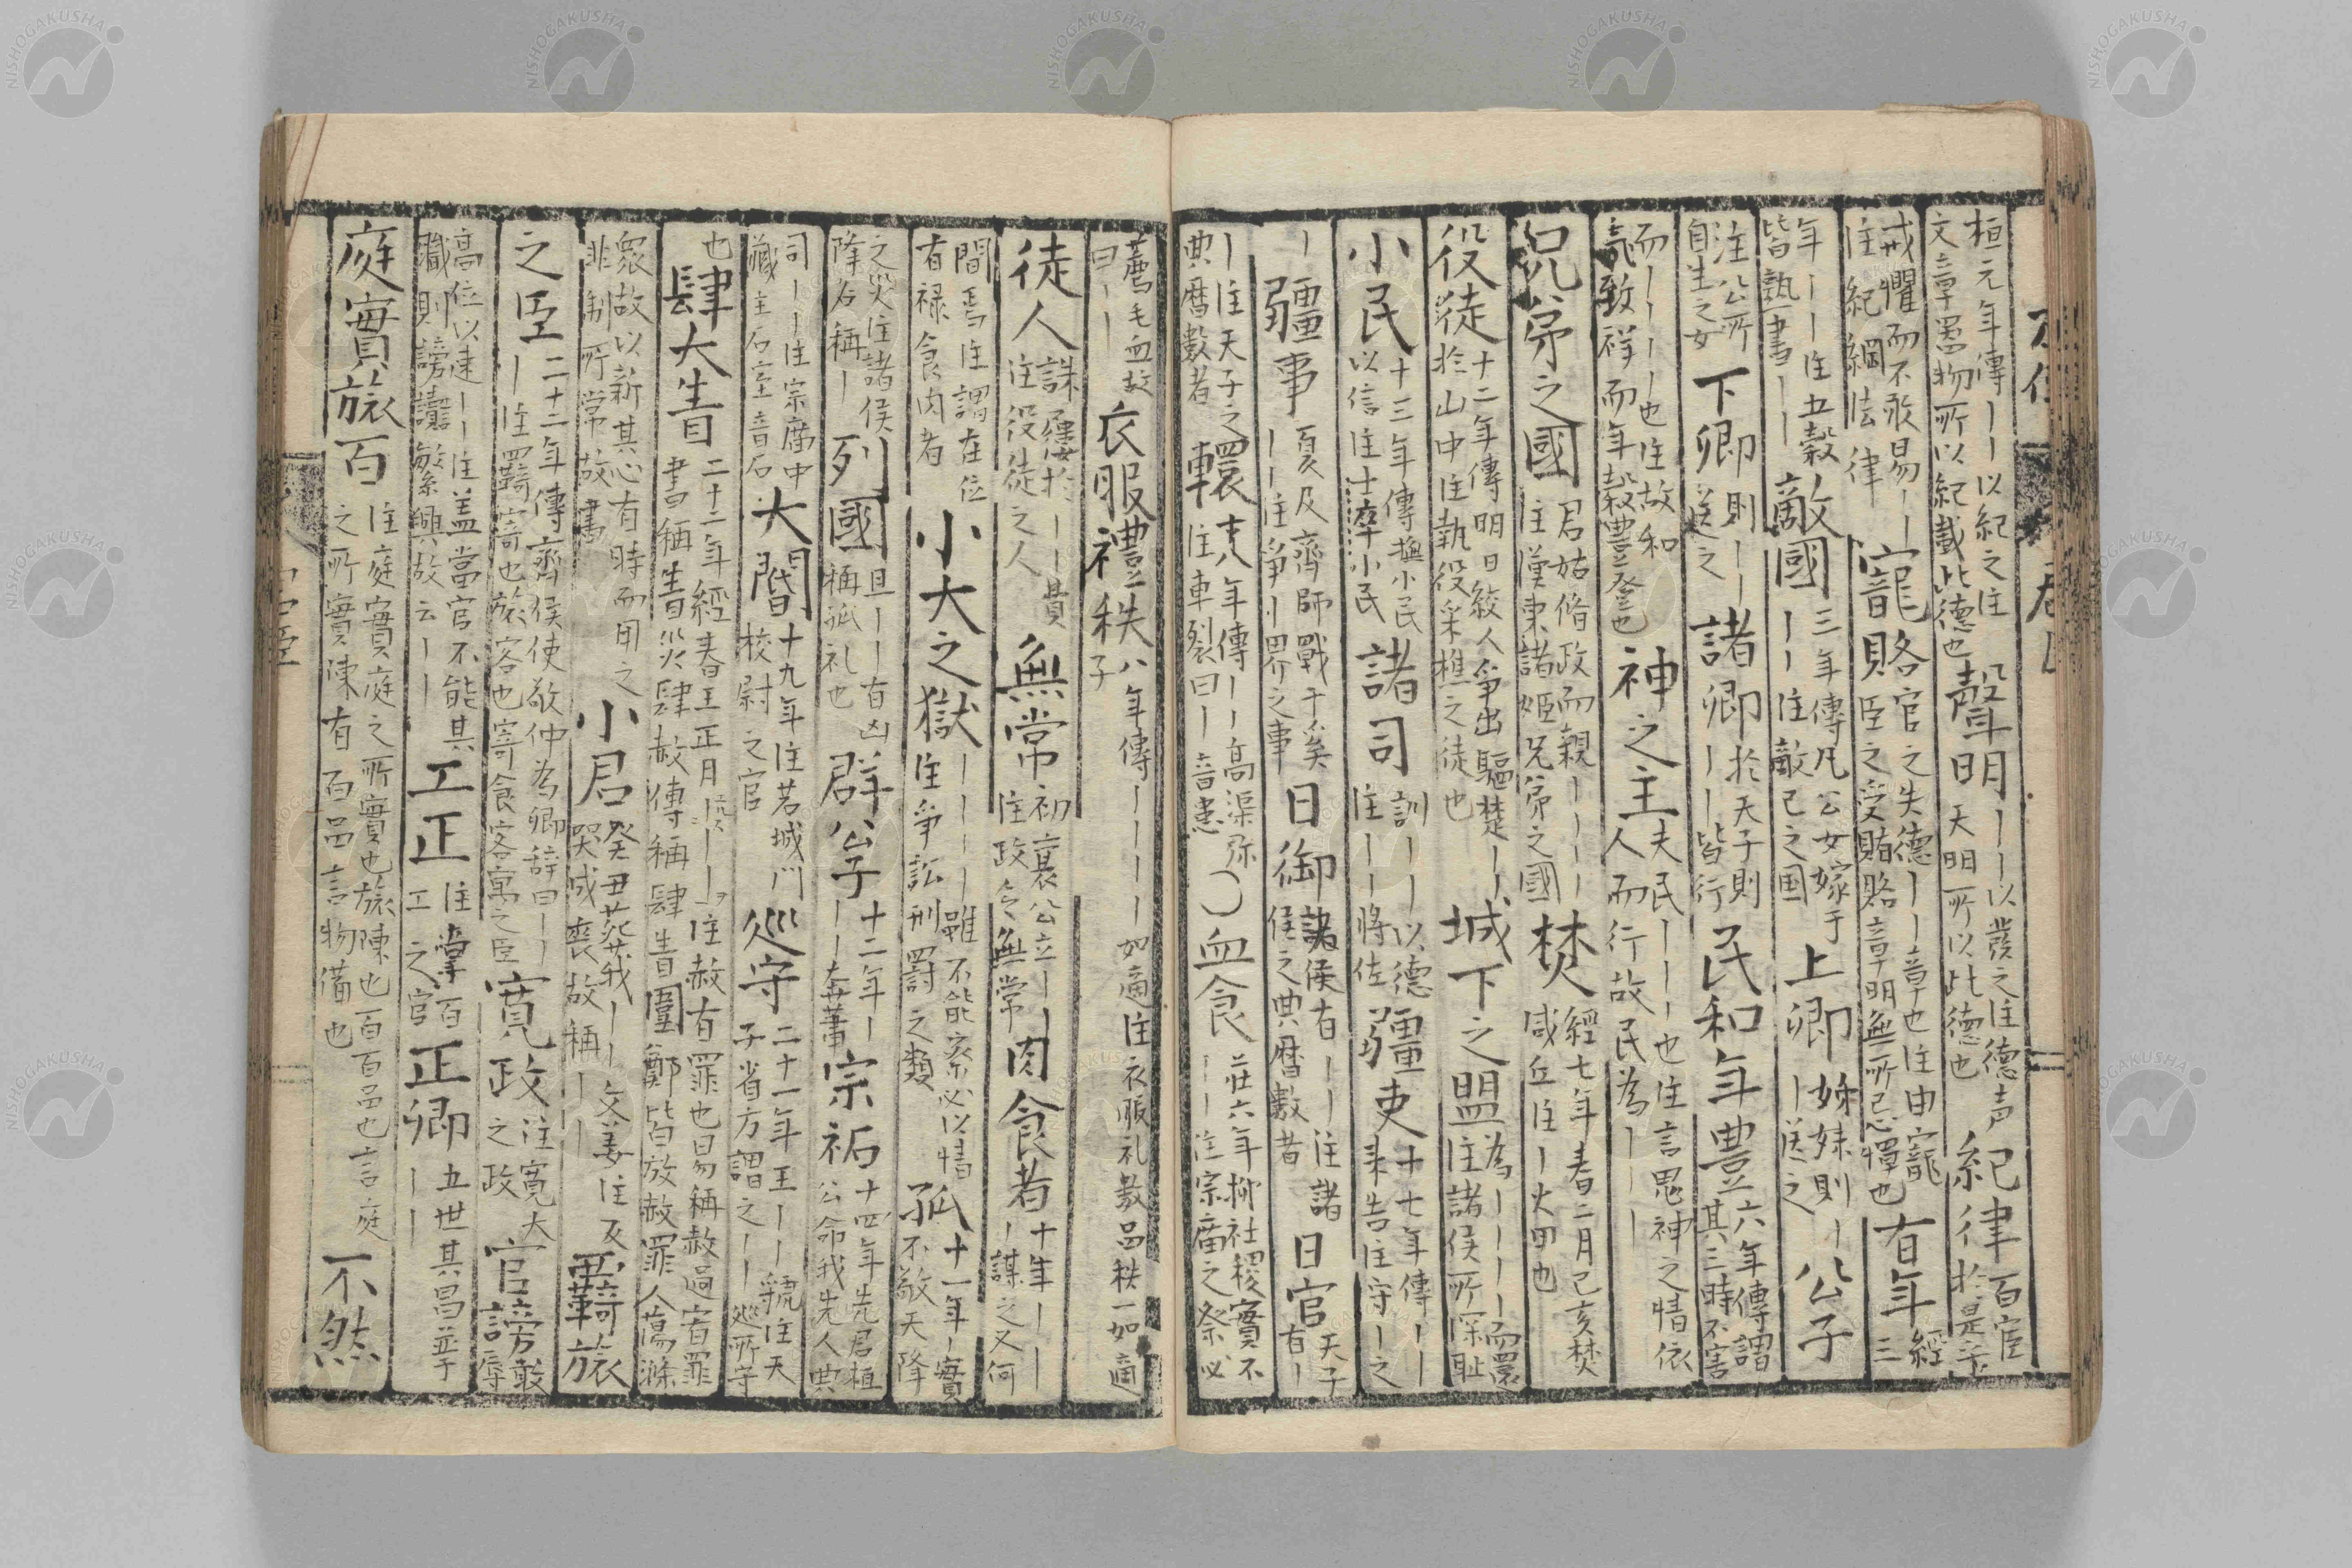 桓元年傳丨丨以紀之注
文章愚物所以紀載此德也
聲明丨丨以發之注德声
天明所以此德也
紀律百官
於是乎
戒懼而不敢易丨丨
注紀綱法律
寵賂官之失德丨丨章也注由寵
臣之受賂賂章明無所忌憚也
有年經
三
年丨丨注五穀
皆熟書丨丨
敵國三年傳凡公女嫁于
丨丨注敵己之国
上卿姊妹則丨
丨送之
公子
注公所
自生之女
下卿則丨丨
送之
諸卿於天子則
丨丨皆行
民和年豊六年傳謂
其三時不害
而丨丨丨也注故和
致祥而年穀豊登也
神之主夫民丨丨丨也注言鬼神之情依
人而行故民為丨丨丨
兄弟之國君姑脩政而親丨丨丨丨
注漢東諸姬兄弟之國
焚經七年春二月己亥焚
咸丘注丨火田也
役徒十二年傳明日絞人爭出驅楚丨丨
於山中注執役采樵之徒也
城下之盟為丨丨丨丨而還
注諸侯所深耻
小民十三年傳撫小民
以信注士卒小民
諸司訓丨丨以德
注丨丨將佐
疆吏十七年傳丨丨
来告注守丨之
丨
疆事夏及齊師戰于奚
丨丨注爭丨界之事
日御諸侯有丨丨注諸
侯之典曆數者
日官天子
有丨
丨注天子之
典曆數者
轘十八年傳丨丨高渠弥
注車裂曰丨音患
血食莊六年傳社稷實不
丨丨注宗廟之祭必
薦毛血故
曰丨丨
衣服禮秩八年傳丨丨丨丨如適注衣服礼数品秩一如適
子
徒人誅屨於丨丨費
注役徒之人
無常初襄公立丨丨
注政令無常
肉食者十年丨丨
丨謀之又何
間焉注謂在位
有祿食肉者
小大之獄丨丨丨丨雖不能察必以情
注爭訟刑罰之類
孤十一年丨實
不敬天降
之災注諸侯
降名稱丨
列國且丨丨有凶
稱孤礼也
群公子十二年丨
丨丨奔蕭
宗祏十四年先君桓
公命我先人典
司丨丨注宗廟中
藏主石室音石
大閽十九年注若城門
校尉之官
巡守二十一年王丨丨虢注天
子省方謂之丨丨巡所守
也
肆大眚二十二年經春王正月丨丨注赦有罪也易稱赦過宥罪
書稱眚災肆赦傳稱肆眚圍鄭皆放赦罪人蕩滌
衆故以新其心有時而用之
非制所常故書
小君癸丑葬我丨丨文姜注反
哭成喪故稱丨丨
羇旅
之臣二十二年傳齊侯使敬仲為卿辞曰丨丨
丨注羇寄也旅客也寄食客寓之臣
寛政注寛大
之政
官謗敢
辱
高位以速丨丨注盖當官不能其
職則謗讟繁興故云丨丨
工正注掌百
工之官
正卿五世其昌並于
丨丨
庭實旅百注庭實庭之所實也旅陳也百百品也言庭
之所實陳有百品言物備也
不然